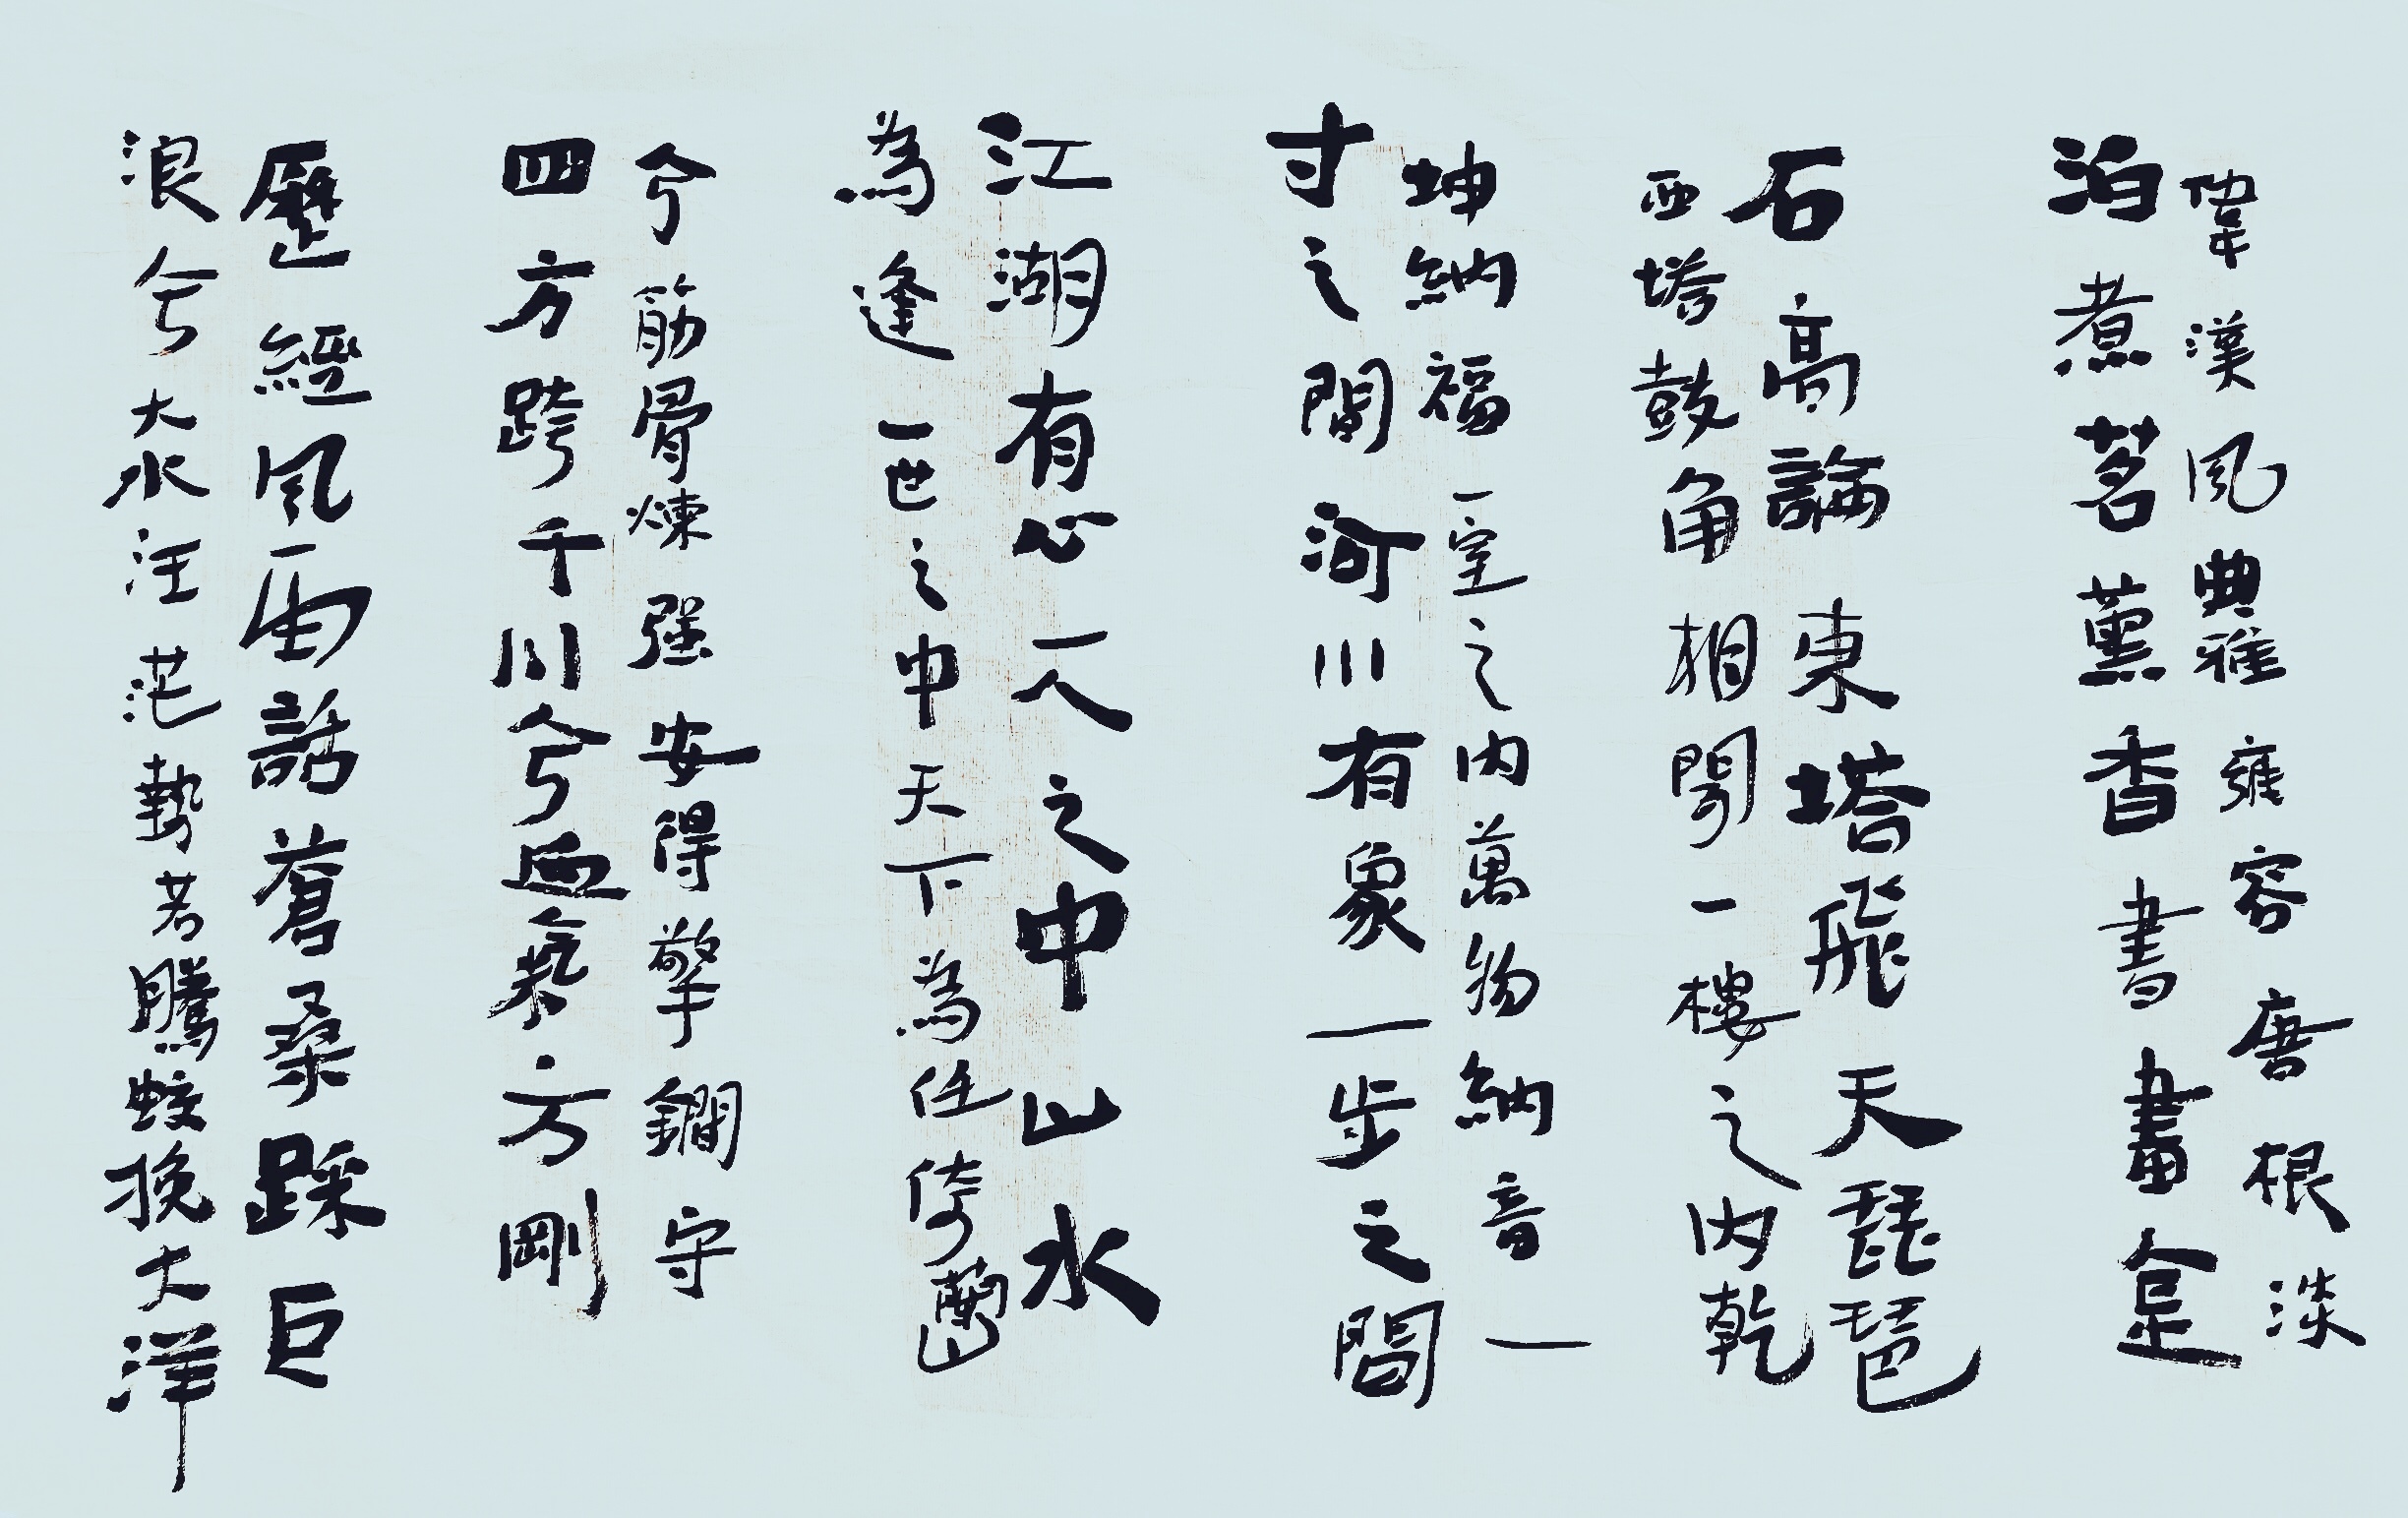 偉漢風典雅雍容唐根淡
泊煮茗薰香書畫金
石高論東塔飛天琵琶
西塔鼓角相聞一樓之內乾
坤納福一室之內萬物納音一
寸之間河川有象一步之間
江湖有心一人之中山水
為逢一世之中天下為任倚蘭山
兮筋骨煉强安得擎鐧守
四方跨千川兮血氣方剛
歷經風雨話蒼桑踩巨
浪兮大水汪茫勢若騰蛟挽大洋